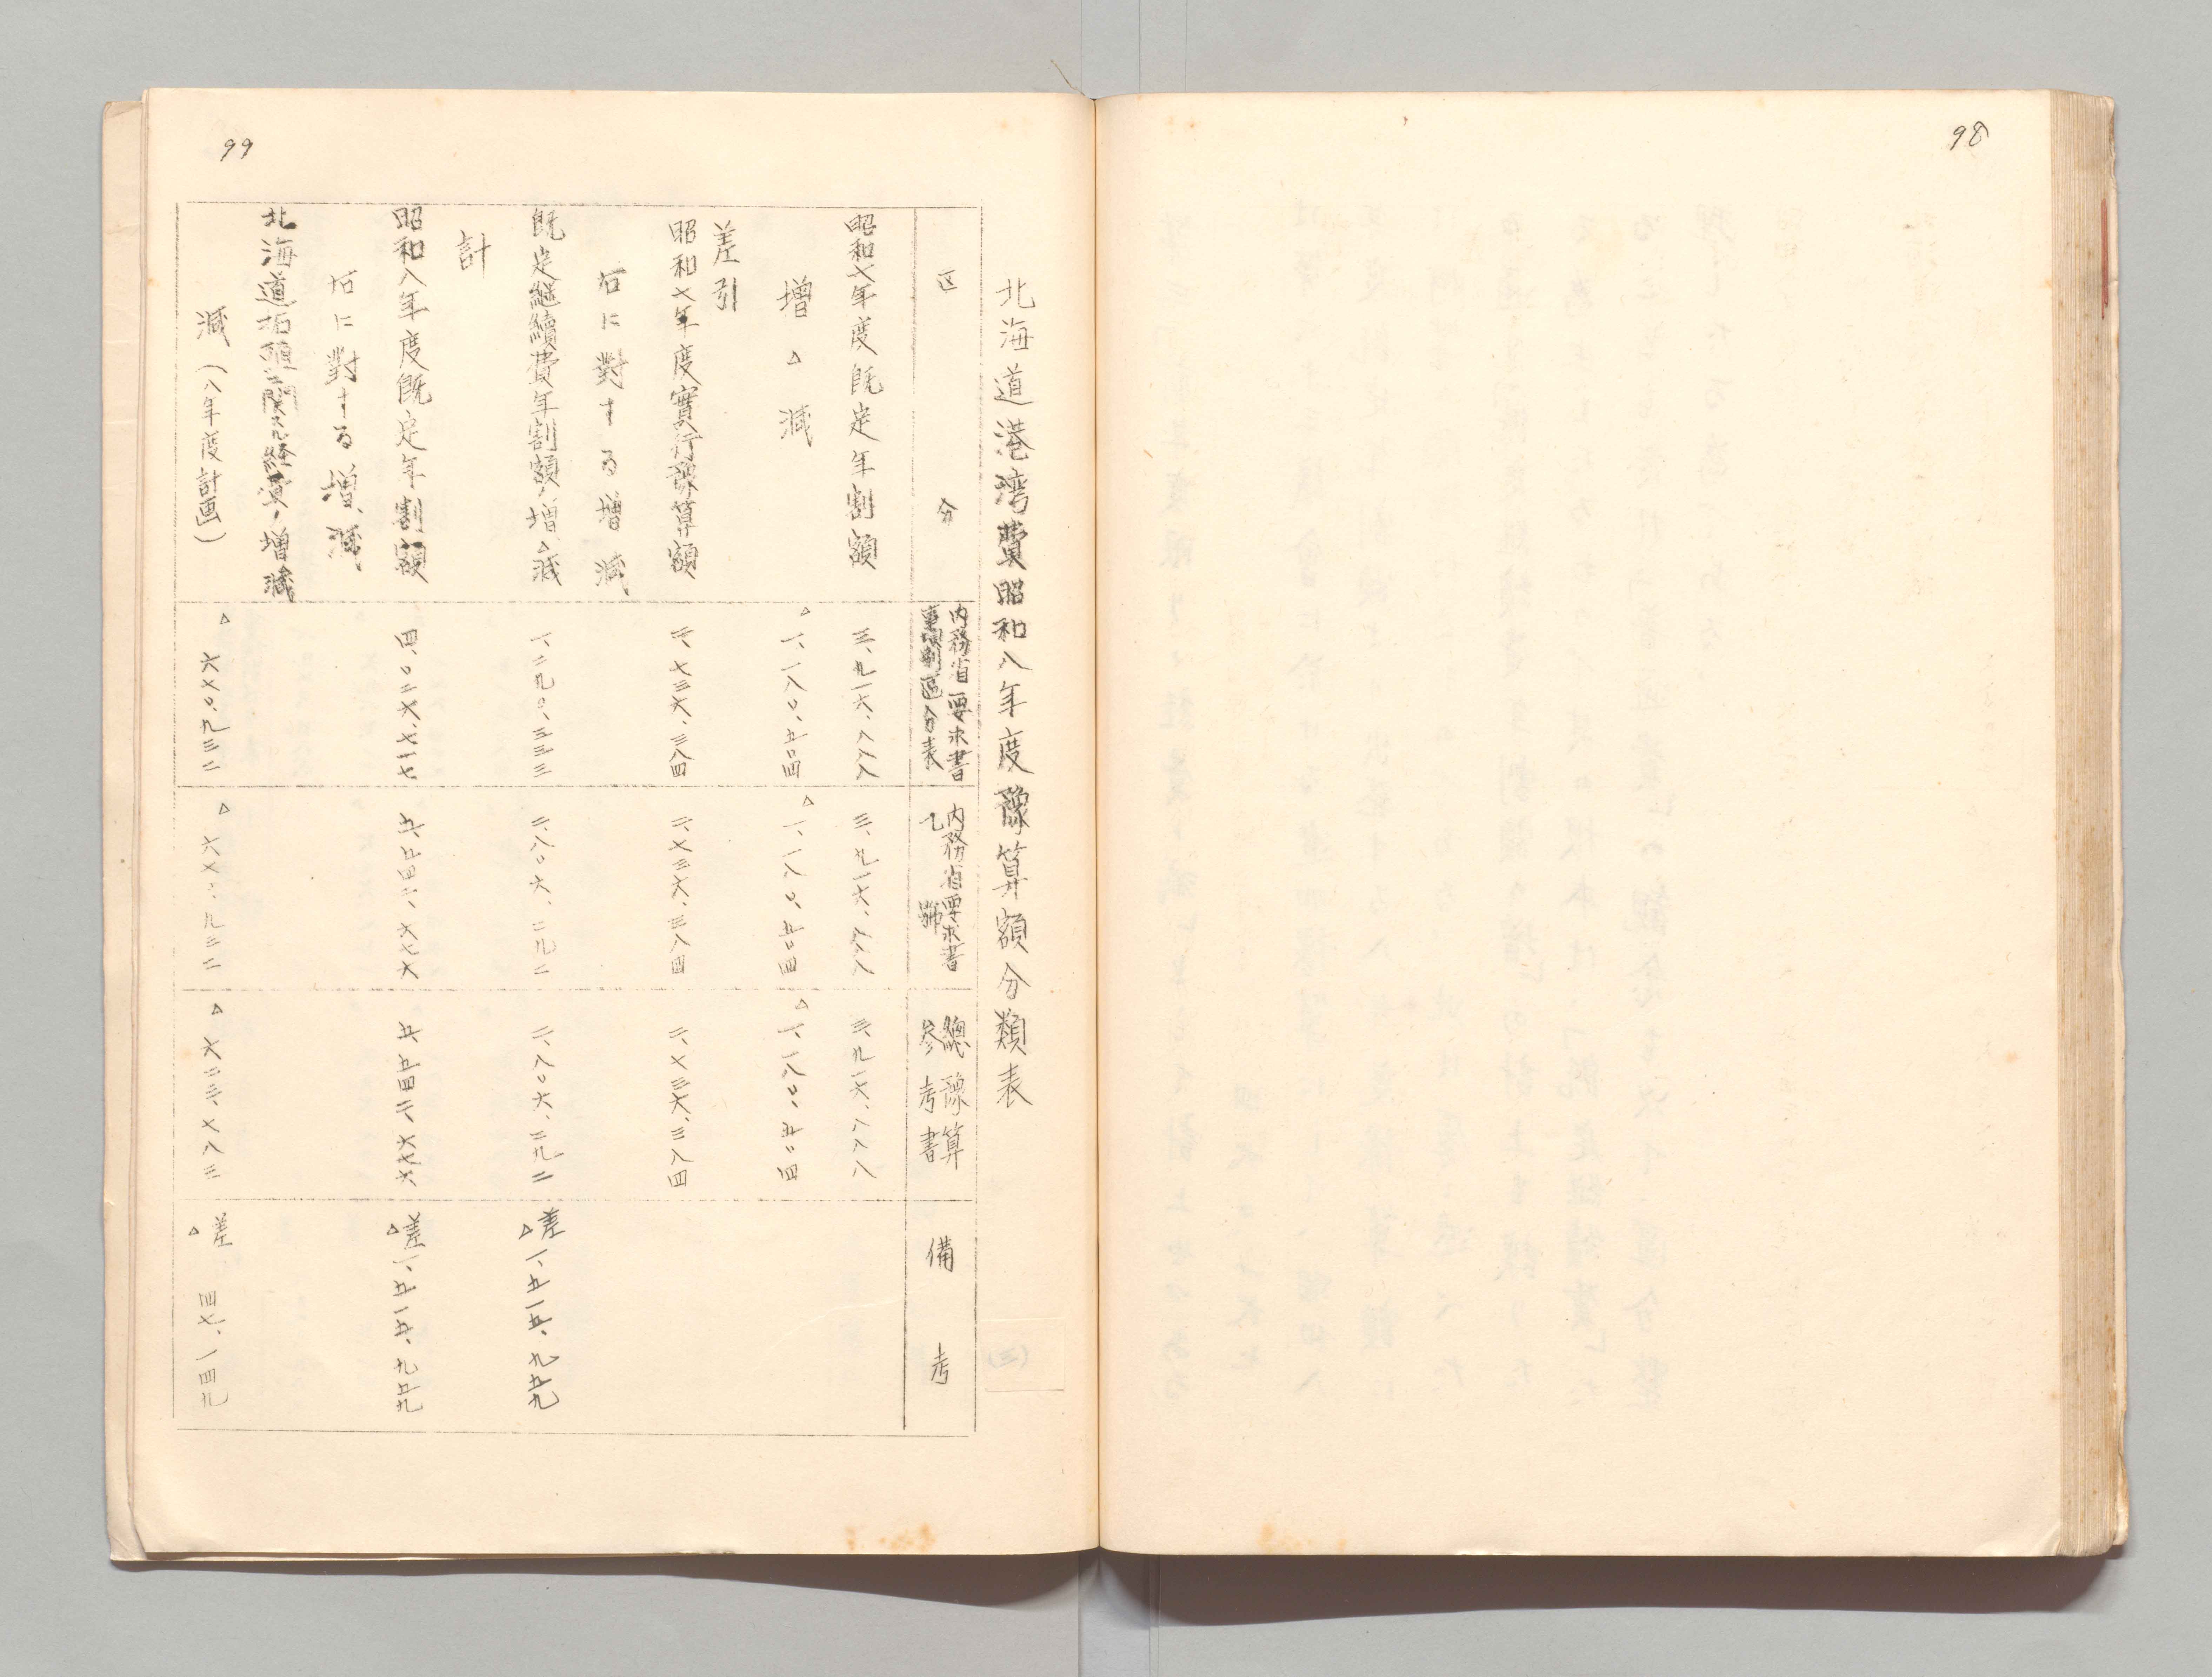 98
99
北海道港湾費昭和八年度豫算額分類表
(三)
区分
内務省要求書
事項別區分表
内務省要求書
乙號
總豫算
参考書
備考
昭和七年度既定年割額
三、九一六、八八八
三、九一六、八八八
三、九一六、八八八
増△減
△一、一八〇、五〇四
△一、一八〇、五〇四
△一、一八〇、五〇四
差引
昭和七年度實行豫算額
二、七三六、三八四
二、七三六、三八四
二、七三六、三八四
右に對する増減
既定継續費年割額ノ増△減
一、二九〇、三三三
二、八〇六、二九二
二、八〇六、二九二
差
△一、五一五、九五九
計
昭和八年度既定年割額
四、〇二六、七一七
五、五四二、六七六
五、五四二、六七六
差
△一、五一五、九五九
右に對する増減
北海道拓殖ニ関スル経費ノ増減
減(八年度計画)
△六七〇、九三二
△六七〇、九三二
△六二三、七八三
差
△四七、一四九